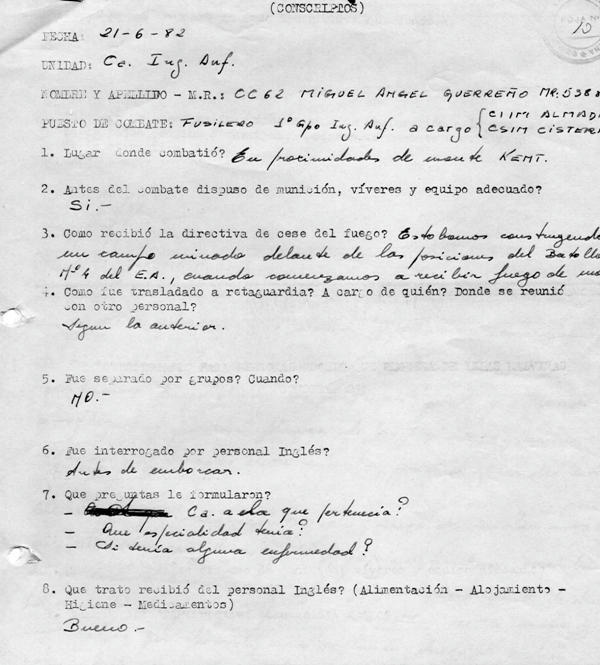 (CONSCRIPTOS)
FOJA Nº
10
FECHA: 21-6-82
UNIDAD: Ca. Ing. Anf.
NOMBRE Y APELLIDO - M.R.: CC62 MIGUEL ANGEL GUERREÑO MR: 5388
PUESTO DE COMBATE: FUSILERO 1º Gpo Ing. Anf. a cargo { CIIM ALMADA
CSIM CISTERNA
1. Lugar donde combatió? En proximidades de monte KENT.
2. Antes del combate dispuso de munición, víveres y equipo adecuado?
Si.-
3. Como recibió la directiva de cese del fuego? Estabamos construyendo
un campo minado delante de las posiciones del Batallón
Nº4 del E.A., cuando comenzamos a recibir fuego de
4. Como fue trasladado a retaguardia? A cargo de quién? Donde se reunió
con otro personal?
Segun la anterior.
5. Fue separado por grupos? Cuando?
NO.-
6. Fue interrogado por personal Inglés?
Antes de embarcar.
7. Que preguntas le formularon?
- Ca. a la que pertenecia?
- Que especialidad tenia?
- Si tenia alguna enfermedad?
8. Que trato recibió del personal Inglés? (Alimentación - Alojamiento -
Higiene - Medicamentos)
Bueno.-